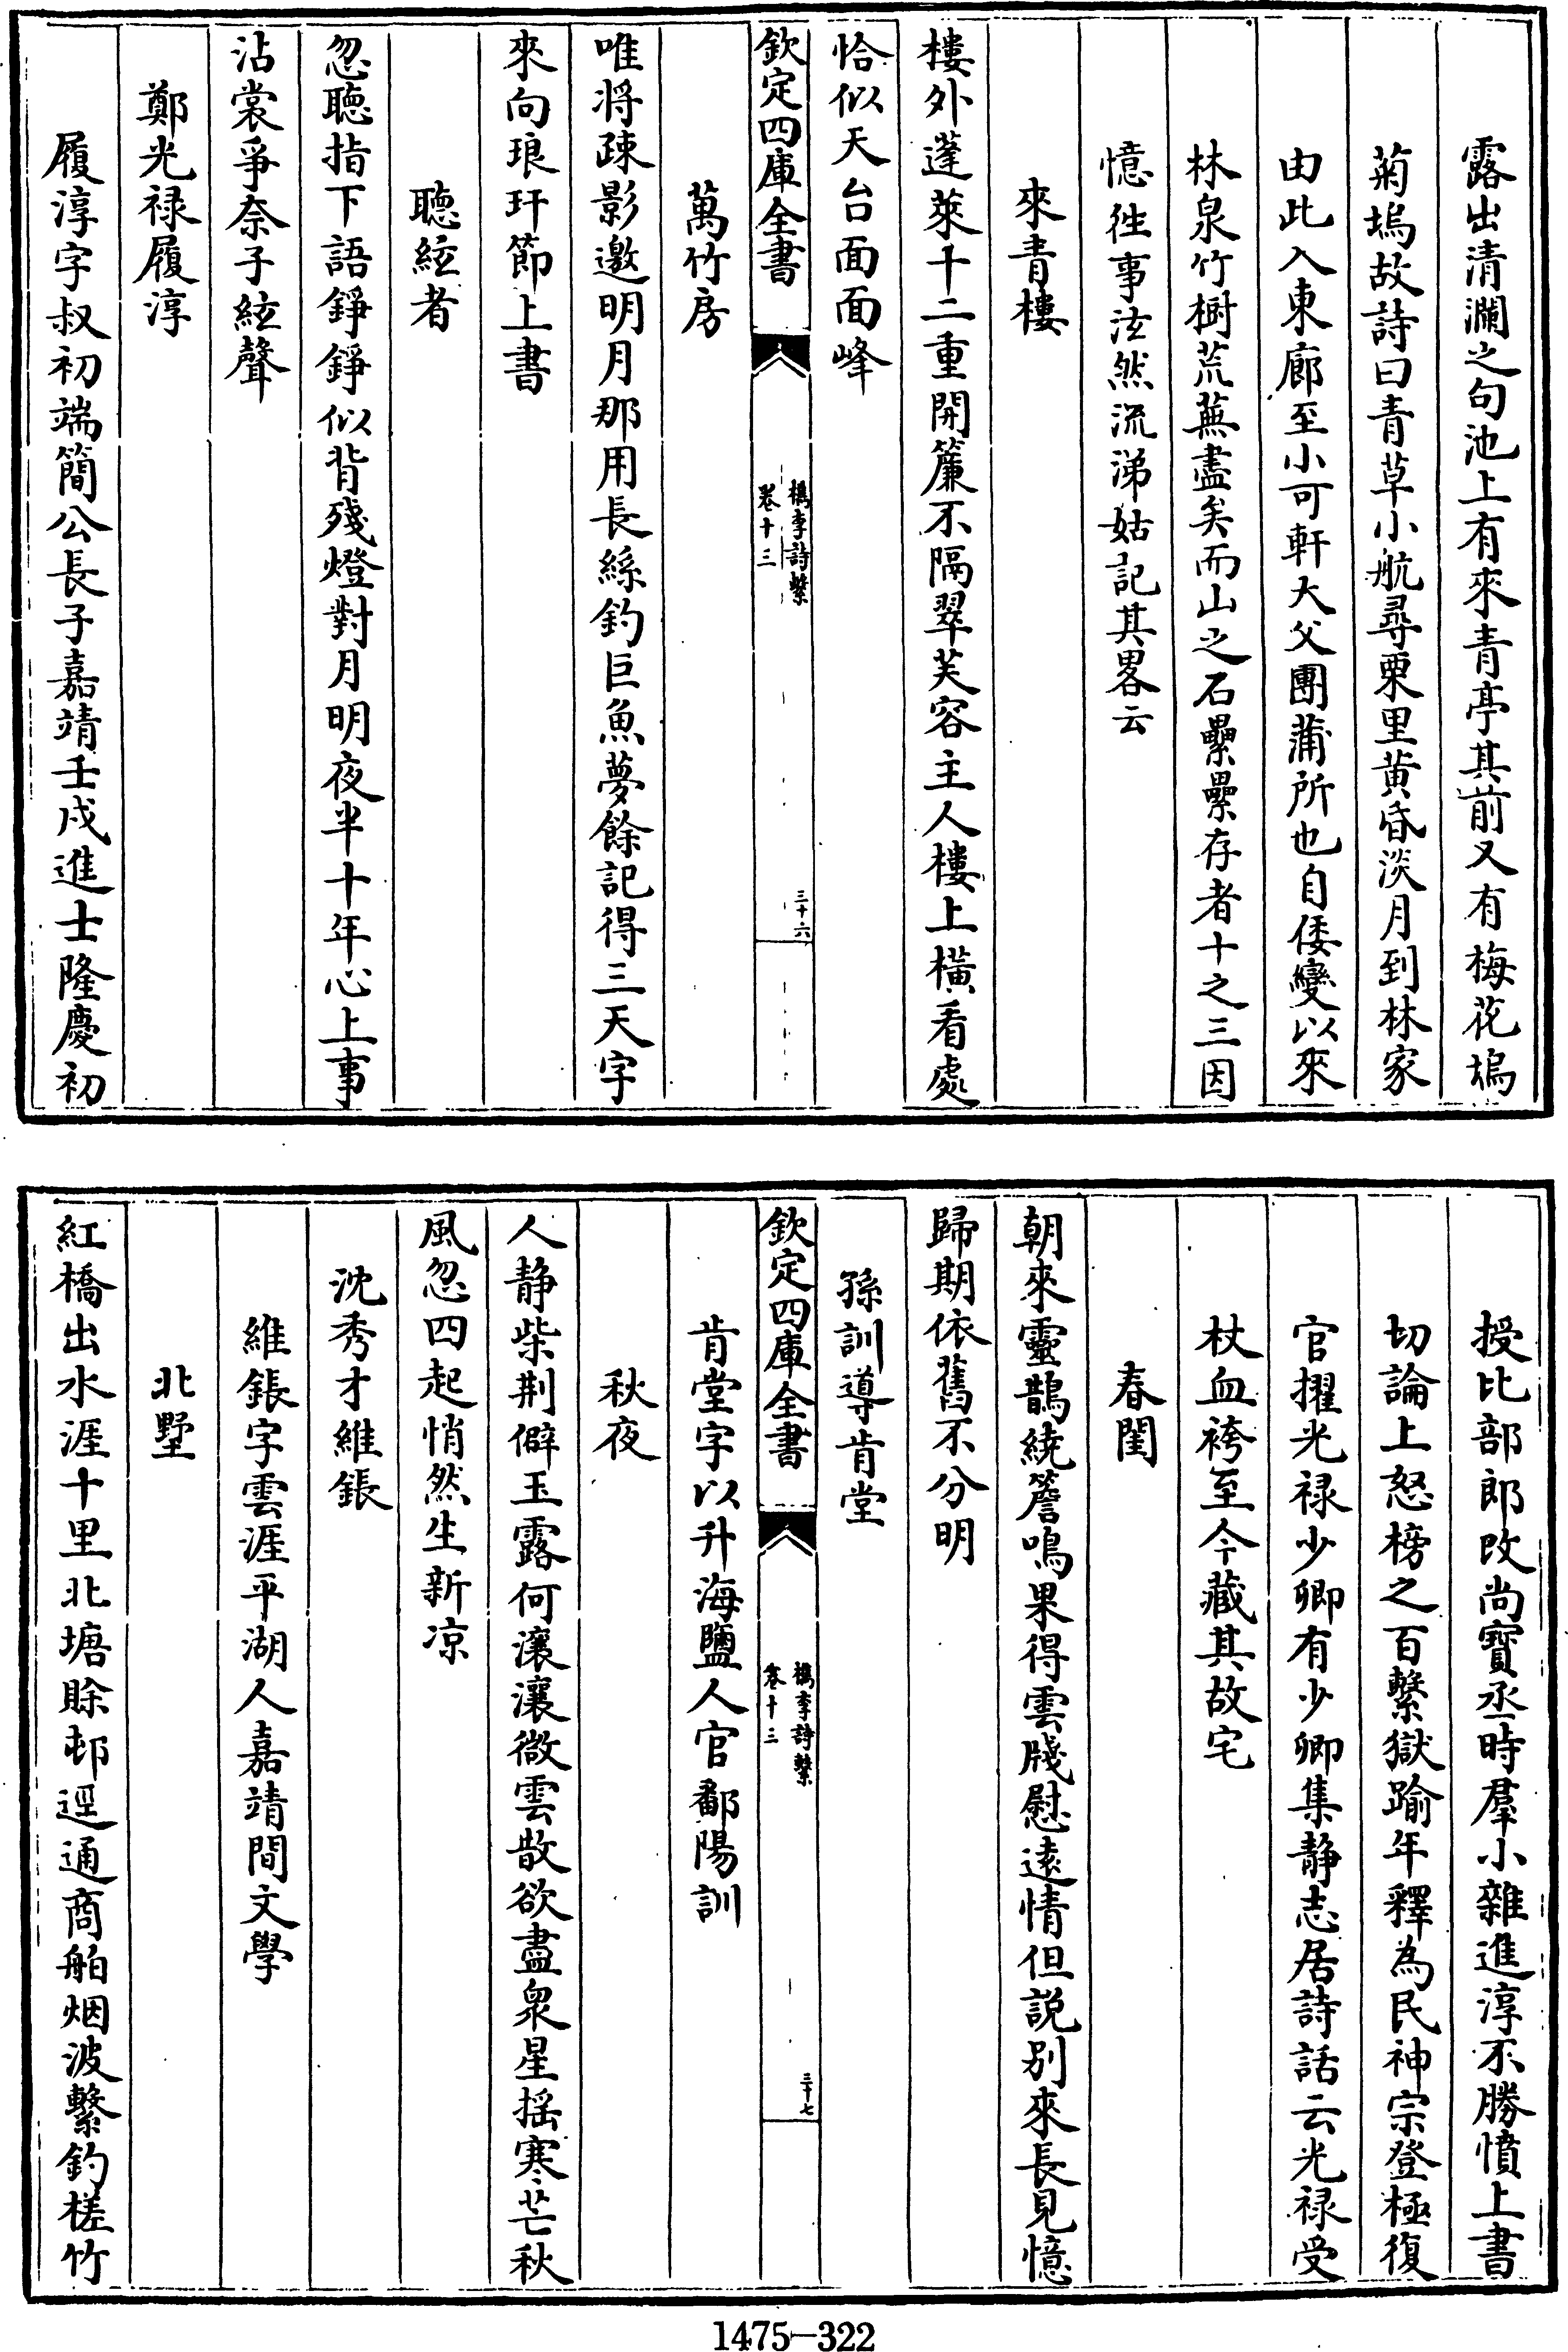 露出清瀾之句池上有來青亭其前又有梅花塢
菊塢故詩曰青草小航尋栗里黄昏淡月到林家
由此入東廊至小可軒大父團蒲所也自倭變以來
林泉竹樹荒蕪盡矣而山之石纍纍存者十之三因
憶徃事泫然流涕姑記其畧云
來青樓
樓外蓬萊十二重開簾不隔翠芙容主人樓上横看處
恰似天台面面峰
欽定四庫全書
檇李詩繫
卷十三
三十六
萬竹房
唯将疎影邀明月那用長絲釣巨魚夢餘記得三天字
來向琅玕節上書
聽絃者
忽聽指下語錚錚似背殘燈對月明夜半十年心上事
沾裳爭奈子絃聲
鄭光禄履淳
履淳字叔初端簡公長子嘉靖壬戌進士隆慶初
授比部郎改尚寳丞時羣小雜進淳不勝憤上書
切論上怒榜之百繫獄踰年釋為民神宗登極復
官擢光禄少卿有少卿集静志居詩話云光禄受
杖血袴至今藏其故宅
春閨
朝來靈鵲繞簷鳴果得雲牋慰遠情但説别來長見憶
歸期依舊不分明
孫訓導肯堂
欽定四庫全書
檇李詩繫
卷十三
三十七
肯堂字以升海鹽人官鄱陽訓
秋夜
人静柴荆僻玉露何瀼瀼微雲散欲盡泉星摇寒芒秋
風忽四起悄然生新凉
沈秀才維鋹
維鋹字雲涯平湖人嘉靖間文學
北墅
紅橋出水涯十里北塘賖邨逕通商舶烟波繫釣槎竹
1475-322